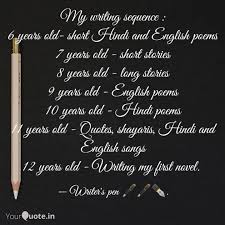 My writing sequence :
6 years old- short Hindi and English poems
7 years old - short stories
8 years old - long stories
9 years old - English poems
10 years old - Hindi poems
11 years old - Quotes, shayaris, Hindi and
English songs
12 years old - Writing my first novel.
— Writer's pen 🖋🖋🖋.
YourQuote.in